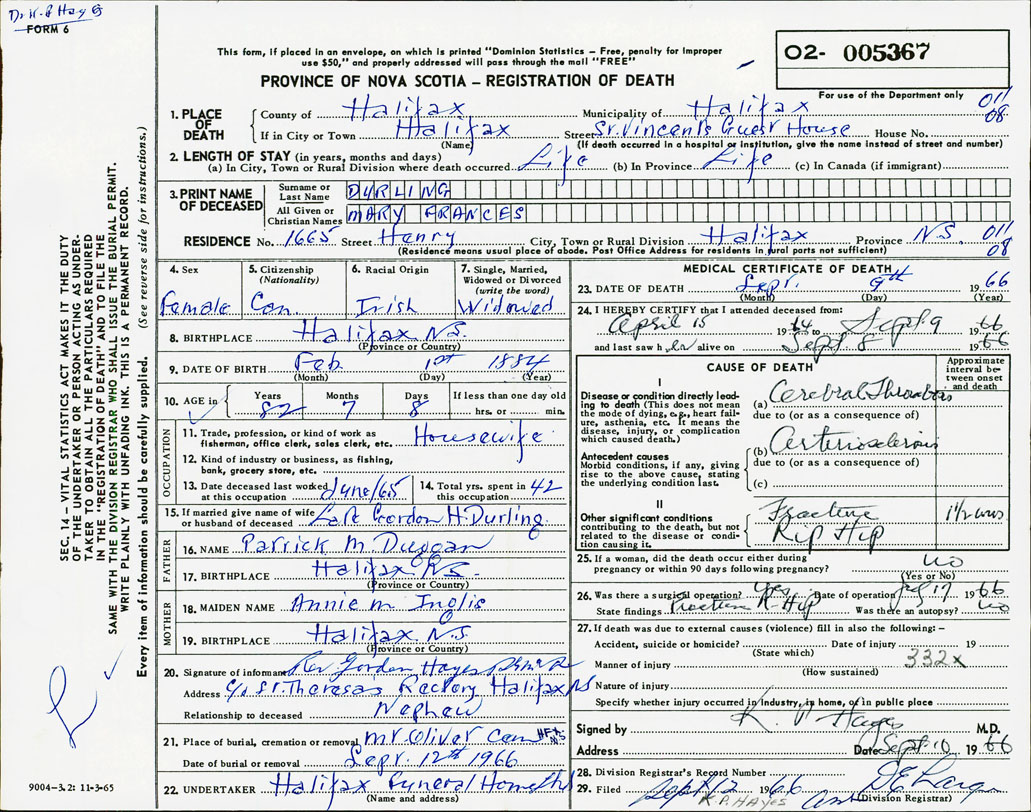 Dr K P Hayes
FORM 6
This form, if placed in an envelope, on which is printed "Dominion Statistics – Free, penalty for improper
use $50," and properly addressed will pass through the mail "FREE"
O2- 005367
PROVINCE OF NOVA SCOTIA – REGISTRATION OF DEATH
For use of the Department only
1. PLACE OF DEATH
County of Halifax Municipality of Halifax 011
08
If in City or Town Halifax Street St. Vincent's Guest House House No.
(Name) (If death occurred in a hospital or institution, give the name instead of street and number)
2. LENGTH OF STAY (in years, months and days)
(a) In City, Town or Rural Division where death occurred Life (b) In Province Life (c) In Canada (if immigrant)
3. PRINT NAME OF DECEASED
Surname or Last Name DURLING
All Given or Christian Names MARY FRANCES
RESIDENCE No. 1665 Street Henry City, Town or Rural Division Halifax Province N.S. 011
(Residence means usual place of abode. Post Office Address for residents in rural parts not sufficient) 08
4. Sex Female
5. Citizenship (Nationality) Can.
6. Racial Origin Irish
7. Single, Married, Widowed or Divorced (write the word) Widowed
8. BIRTHPLACE Halifax N.S.
(Province or Country)
9. DATE OF BIRTH Feb. 1st 1884
(Month) (Day) (Year)
10. AGE in Years 82 Months 7 Days 8 If less than one day old
hrs. or min.
OCCUPATION
11. Trade, profession, or kind of work as
fisherman, office clerk, sales clerk, etc. Housewife
12. Kind of industry or business, as fishing,
bank, grocery store, etc.
13. Date deceased last worked at this occupation June/65
14. Total yrs. spent in this occupation 42
15. If married give name of wife
or husband of deceased Late Gordon H. Durling
FATHER
16. NAME Patrick M. Duggan
17. BIRTHPLACE Halifax N.S.
(Province or Country)
MOTHER
18. MAIDEN NAME Annie M Inglis
19. BIRTHPLACE Halifax N.S.
(Province or Country)
20. Signature of informant Rev. Gordon Hayes
Address c/o St. Theresa's Rectory Halifax NS
Relationship to deceased Nephew
21. Place of burial, cremation or removal Mt Oliver Cem HFX N.S
Date of burial or removal Sept. 12th 1966
22. UNDERTAKER Halifax Funeral Home
(Name and address)
MEDICAL CERTIFICATE OF DEATH
23. DATE OF DEATH Sept. 9th 1966
(Month) (Day) (Year)
24. I HEREBY CERTIFY that I attended deceased from:
April 15 1964 to Sept 9 1966
and last saw her alive on Sept 8 1966
CAUSE OF DEATH
Approximate interval between onset and death
I
Disease or condition directly leading to death (This does not mean
the mode of dying, e.g., heart failure, asthenia, etc. It means the
disease, injury, or complication
which caused death.)
(a) Cerebral Thrombosis
due to (or as a consequence of)
Antecedent causes
Morbid conditions, if any, giving
rise to the above cause, stating
the underlying condition last.
(b) Arteriosclerosis
due to (or as a consequence of)
(c)
II
Other significant conditions
contributing to the death, but not
related to the disease or condition causing it.
Fracture
Rt Hip
1½
25. If a woman, did the death occur either during
pregnancy or within 90 days following pregnancy? no
(Yes or No)
26. Was there a surgical operation? Yes Date of operation 17 1966
State findings Fracture R-Hip Was there an autopsy? no
27. If death was due to external causes (violence) fill in also the following: –
Accident, suicide or homicide? Date of injury 19
(State which)
Manner of injury 332x
(How sustained)
Nature of injury
Specify whether injury occurred in industry, in home, or in public place
Signed by K. P Hayes M.D.
Address Date Sept 10 1966
28. Division Registrar's Record Number
29. Filed Sept 12 1966
Division Registrar
K.P. HAYES
SEC. 14 – VITAL STATISTICS ACT MAKES IT THE DUTY
OF THE UNDERTAKER OR PERSON ACTING AS UNDER-
TAKER TO OBTAIN ALL THE PARTICULARS REQUIRED
IN THE "REGISTRATION OF DEATH" AND TO FILE THE
SAME WITH THE DIVISION REGISTRAR WHO SHALL ISSUE THE BURIAL PERMIT.
WRITE PLAINLY WITH UNFADING INK. THIS IS A PERMANENT RECORD.
Every item of information should be carefully supplied. (See reverse side for instructions.)
9004-3.2: 11-3-65